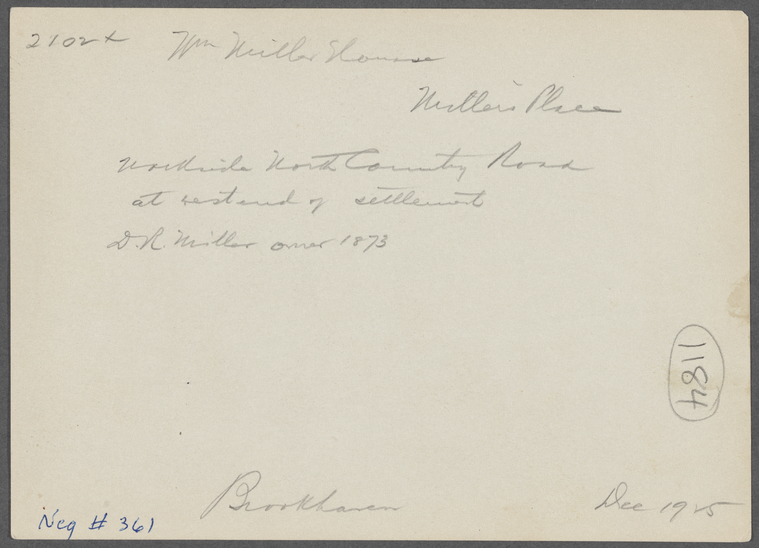 2102x Wm Miller House
Miller's Place
Northside North Country Road
at west end of settlement
D. R. Miller owner 1873
1184
Brookhaven Dec 1925
Neg # 361